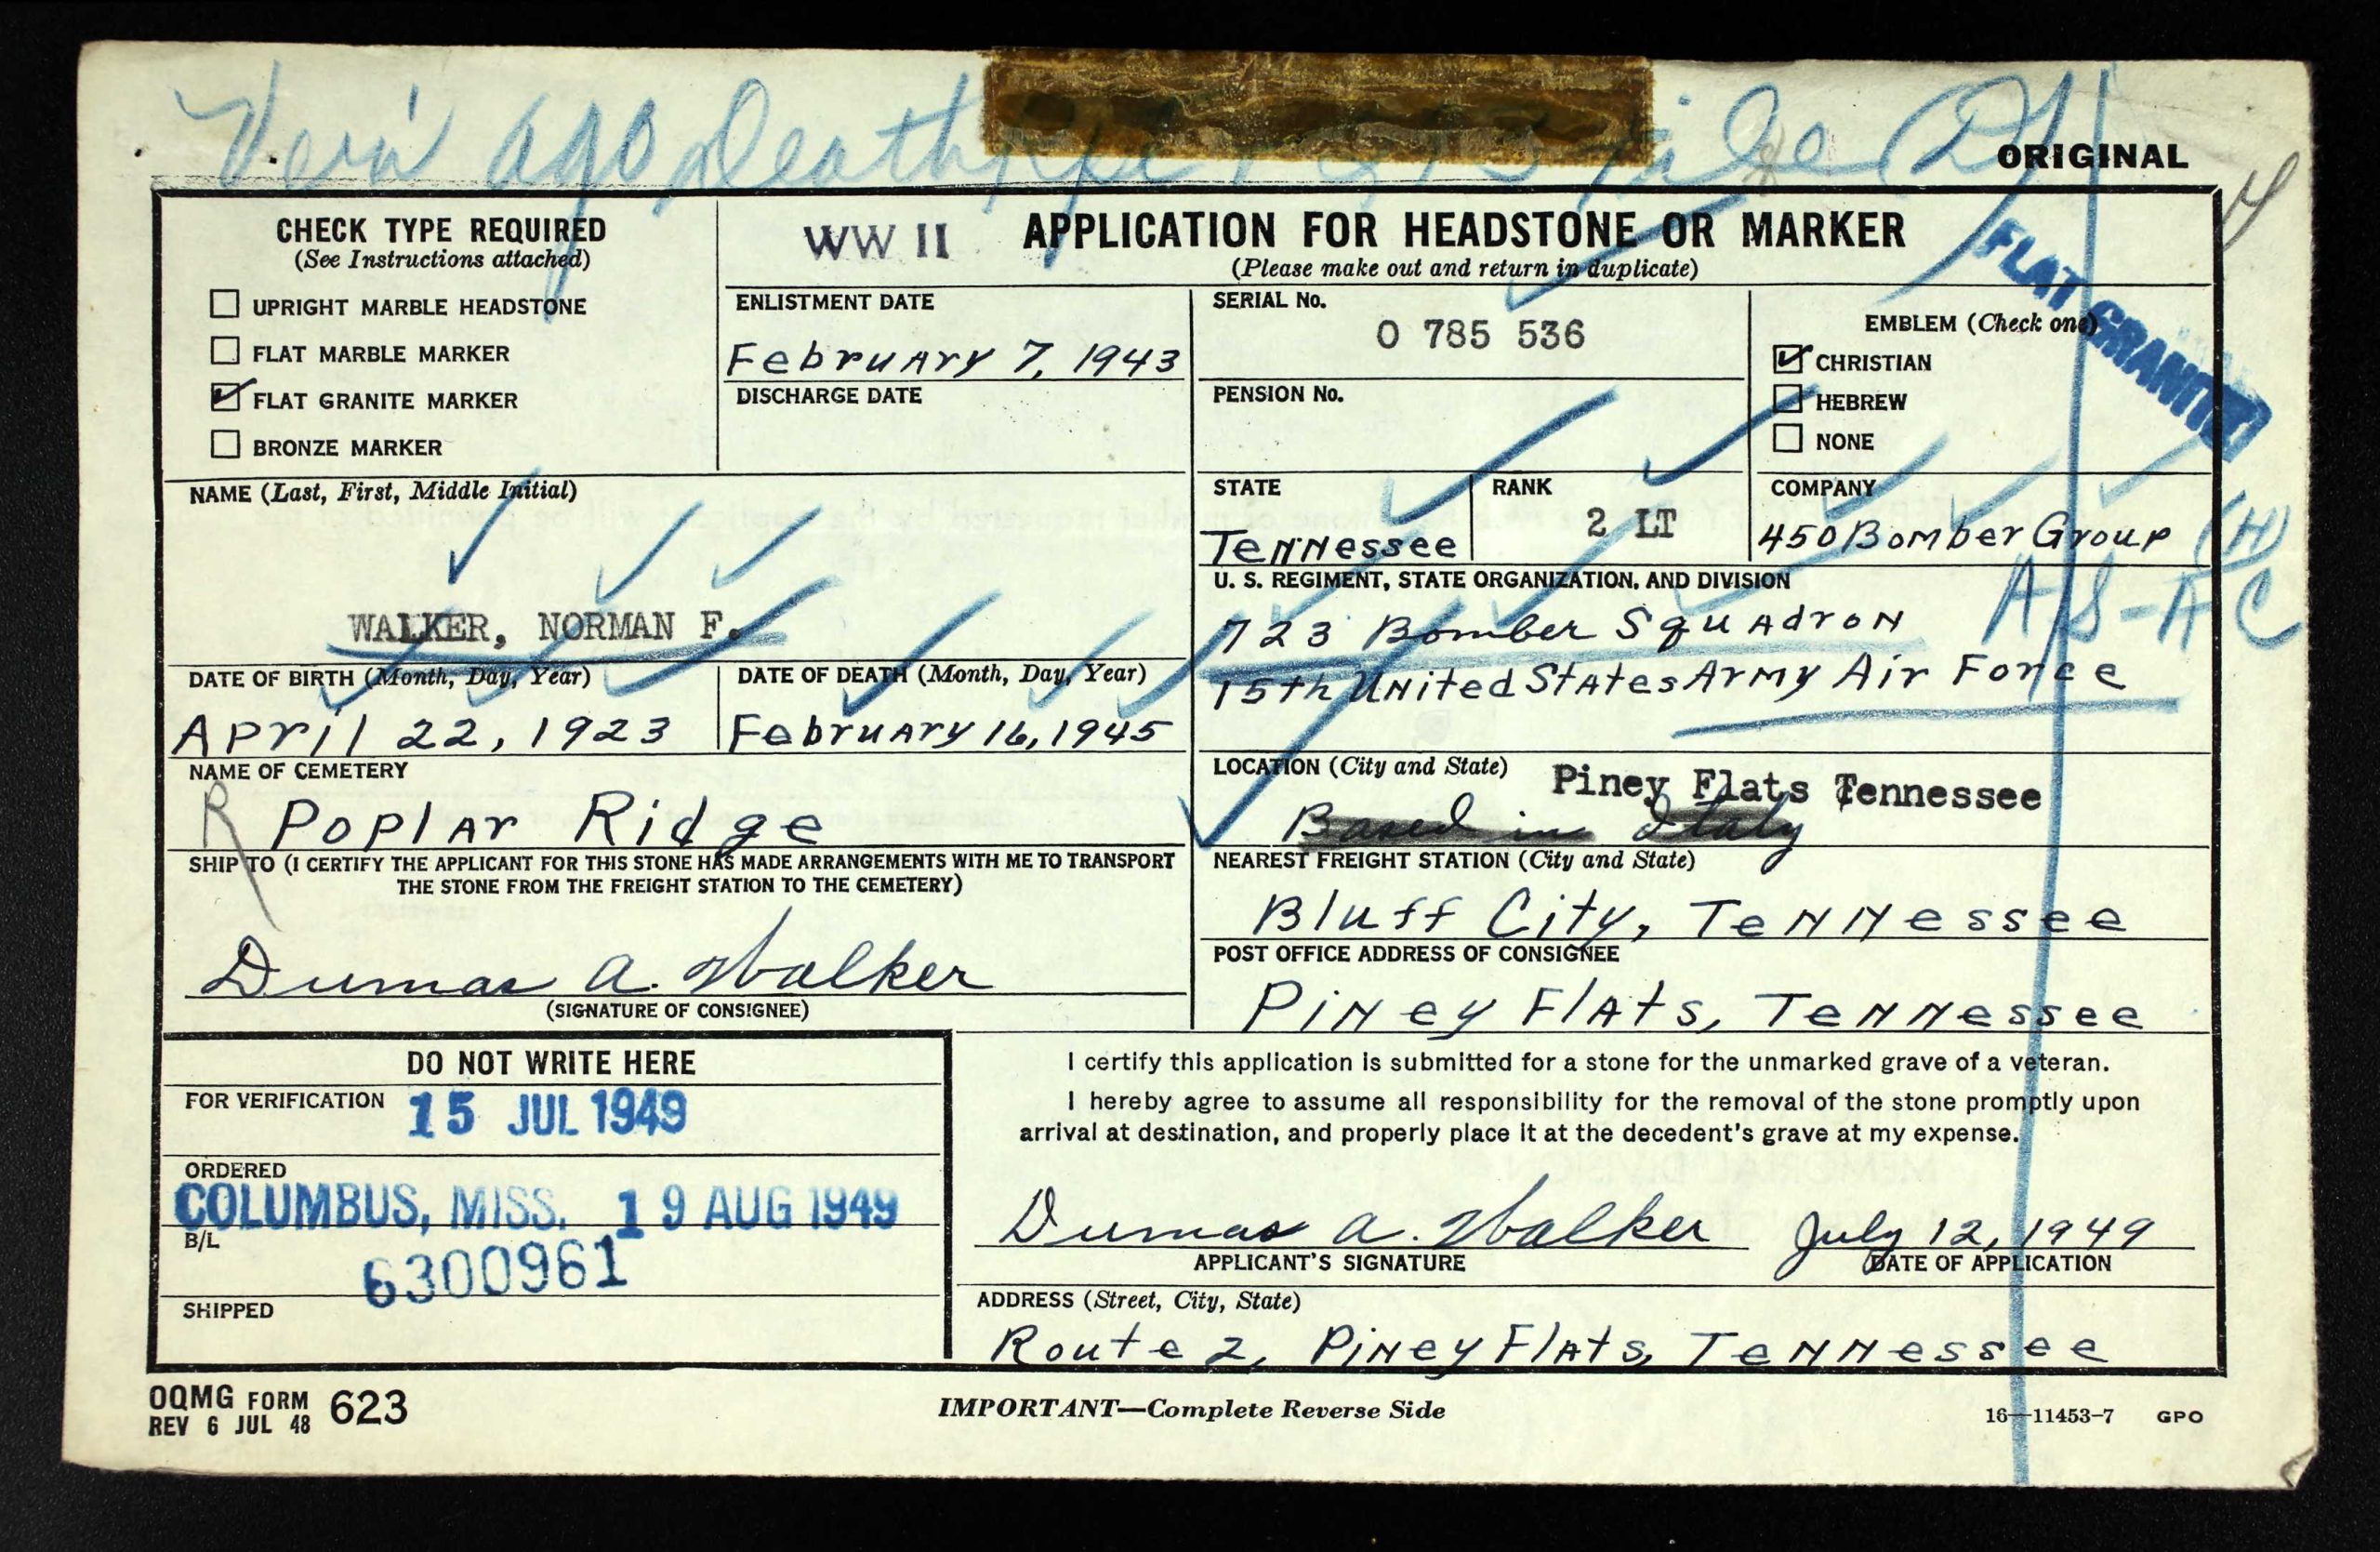 Veri AGO Death
ORIGINAL
CHECK TYPE REQUIRED
(See Instructions attached)
☐ UPRIGHT MARBLE HEADSTONE
☐ FLAT MARBLE MARKER
☑ FLAT GRANITE MARKER
☐ BRONZE MARKER
WW II APPLICATION FOR HEADSTONE OR MARKER
(Please make out and return in duplicate)
ENLISTMENT DATE
February 7, 1943
DISCHARGE DATE
SERIAL No.
O 785 536
PENSION No.
EMBLEM (Check one)
☑ CHRISTIAN
☐ HEBREW
☐ NONE
FLAT GRANITE
NAME (Last, First, Middle Initial)
WALKER, NORMAN F.
STATE
Tennessee
RANK
2 LT
COMPANY
450 Bomber Group (H)
U. S. REGIMENT, STATE ORGANIZATION, AND DIVISION
723 Bomber Squadron
15th United States Army Air Force
AS-AC
DATE OF BIRTH (Month, Day, Year)
April 22, 1923
DATE OF DEATH (Month, Day, Year)
February 16, 1945
NAME OF CEMETERY
R Poplar Ridge
LOCATION (City and State) Piney Flats Tennessee
Based in Italy
SHIP TO (I CERTIFY THE APPLICANT FOR THIS STONE HAS MADE ARRANGEMENTS WITH ME TO TRANSPORT
THE STONE FROM THE FREIGHT STATION TO THE CEMETERY)
Dumas A. Walker
(SIGNATURE OF CONSIGNEE)
NEAREST FREIGHT STATION (City and State)
Bluff City, Tennessee
POST OFFICE ADDRESS OF CONSIGNEE
Piney Flats, Tennessee
DO NOT WRITE HERE
FOR VERIFICATION 15 JUL 1949
ORDERED
COLUMBUS, MISS. 19 AUG 1949
B/L
6300961
SHIPPED
I certify this application is submitted for a stone for the unmarked grave of a veteran.
I hereby agree to assume all responsibility for the removal of the stone promptly upon
arrival at destination, and properly place it at the decedent's grave at my expense.
Dumas A. Walker July 12, 1949
APPLICANT'S SIGNATURE DATE OF APPLICATION
ADDRESS (Street, City, State)
Route 2, Piney Flats, Tennessee
OQMG FORM 623
REV 6 JUL 48
IMPORTANT—Complete Reverse Side
16—11453-7 GPO